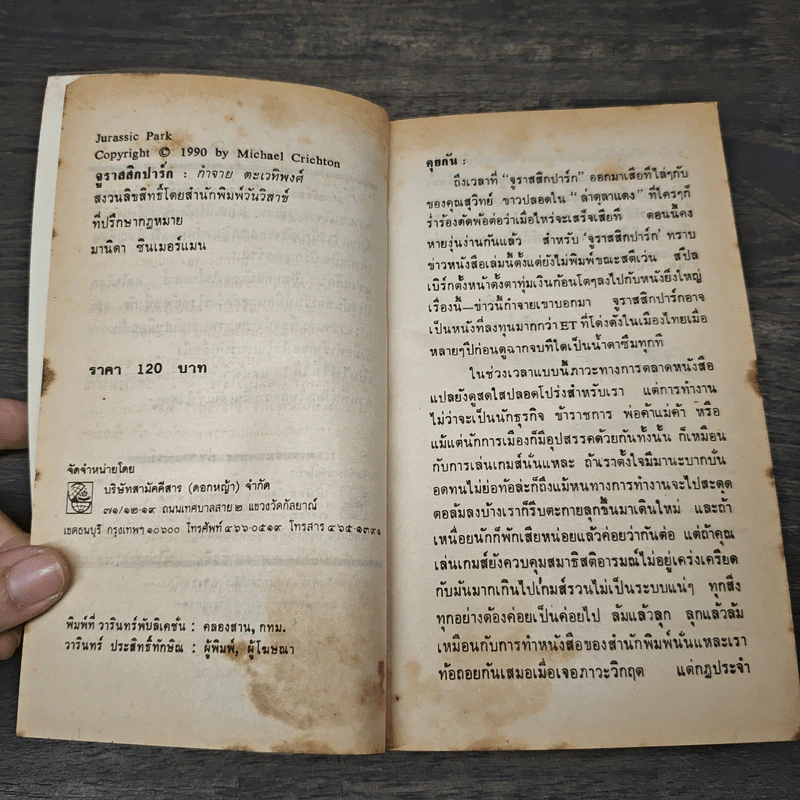 Jurassic Park
Copyright © 1990 by Michael Crichton
จูราสสิกปาร์ก : กำจาย ตะเวทิพงศ์
สงวนลิขสิทธิ์โดยสำนักพิมพ์วันวิสาข์
ที่ปรึกษากฎหมาย
มานิดา ซินเมอร์แมน
ราคา 120 บาท
จัดจำหน่ายโดย
บริษัทสามัคคีสาร (ดอกหญ้า) จำกัด
๗๑/๑๒-๑๙ ถนนเทศบาลสาย ๒ แขวงวัดกัลยาณ์
เขตธนบุรี กรุงเทพฯ ๑๐๖๐๐ โทรศัพท์ ๔๖๖-๐๕๑๙ โทรสาร ๔๖๕-๑๓๙๑
พิมพ์ที่ วารินทร์พับลิเคชั่น : คลองสาน, กทม.
วารินทร์ ประสิทธิ์ทักษิณ : ผู้พิมพ์, ผู้โฆษณา
คุยกัน :
ถึงเวลาที่ "จูราสสิกปาร์ก" ออกมาเสียทีไล่ๆกับ
ของคุณสุวิทย์ ขาวปลอดใน "ล่าตุลาแดง" ที่ใครๆก็
ร่ำร้องตัดพ้อต่อว่าเมื่อไหร่จะเสร็จเสียที ตอนนี้คง
หายงุ่นง่านกันแล้ว สำหรับ 'จูราสสิกปาร์ก' ทราบ
ข่าวหนังสือเล่มนี้ตั้งแต่ยังไม่พิมพ์ขณะสตีเว่น สปีล
เบิร์กตั้งหน้าตั้งตาทุ่มเงินก้อนโตๆลงไปกับหนังยิ่งใหญ่
เรื่องนี้—ข่าวนี้กำจายเขาบอกมา จูราสสิกปาร์กอาจ
เป็นหนังที่ลงทุนมากกว่า ET ที่โด่งดังในเมืองไทยเมื่อ
หลายๆปีก่อนดูฉากจบทีไดเป็นน้ำตาซึมทุกที
ในช่วงเวลาแบบนี้ภาวะทางการตลาดหนังสือ
แปลยังดูสดใสปลอดโปร่งสำหรับเรา แต่การทำงาน
ไม่ว่าจะเป็นนักธุรกิจ ข้าราชการ พ่อค้าแม่ค้า หรือ
แม้แต่นักการเมืองก็มีอุปสรรคด้วยกันทั้งนั้น ก็เหมือน
กับการเล่นเกมส์นั่นแหละ ถ้าเราตั้งใจมีมานะบากบั่น
อดทนไม่ย่อท้อล่ะก็ถึงแม้หนทางการทำงานจะไปสะดุด
ตอล้มลงบ้างเราก็รีบตะกายลุกขึ้นมาเดินใหม่ และถ้า
เหนื่อยนักก็พักเสียหน่อยแล้วค่อยว่ากันต่อ แต่ถ้าคุณ
เล่นเกมส์ยังควบคุมสมาธิสติอารมณ์ไม่อยู่เคร่งเครียด
กับมันมากเกินไปเกมส์รวนไม่เป็นระบบแน่ๆ ทุกสิ่ง
ทุกอย่างต้องค่อยเป็นค่อยไป ล้มแล้วลุก ลุกแล้วล้ม
เหมือนกับการทำหนังสือของสำนักพิมพ์นั่นแหละเรา
ท้อถอยกันเสมอเมื่อเจอภาวะวิกฤต แต่กฎประจำ